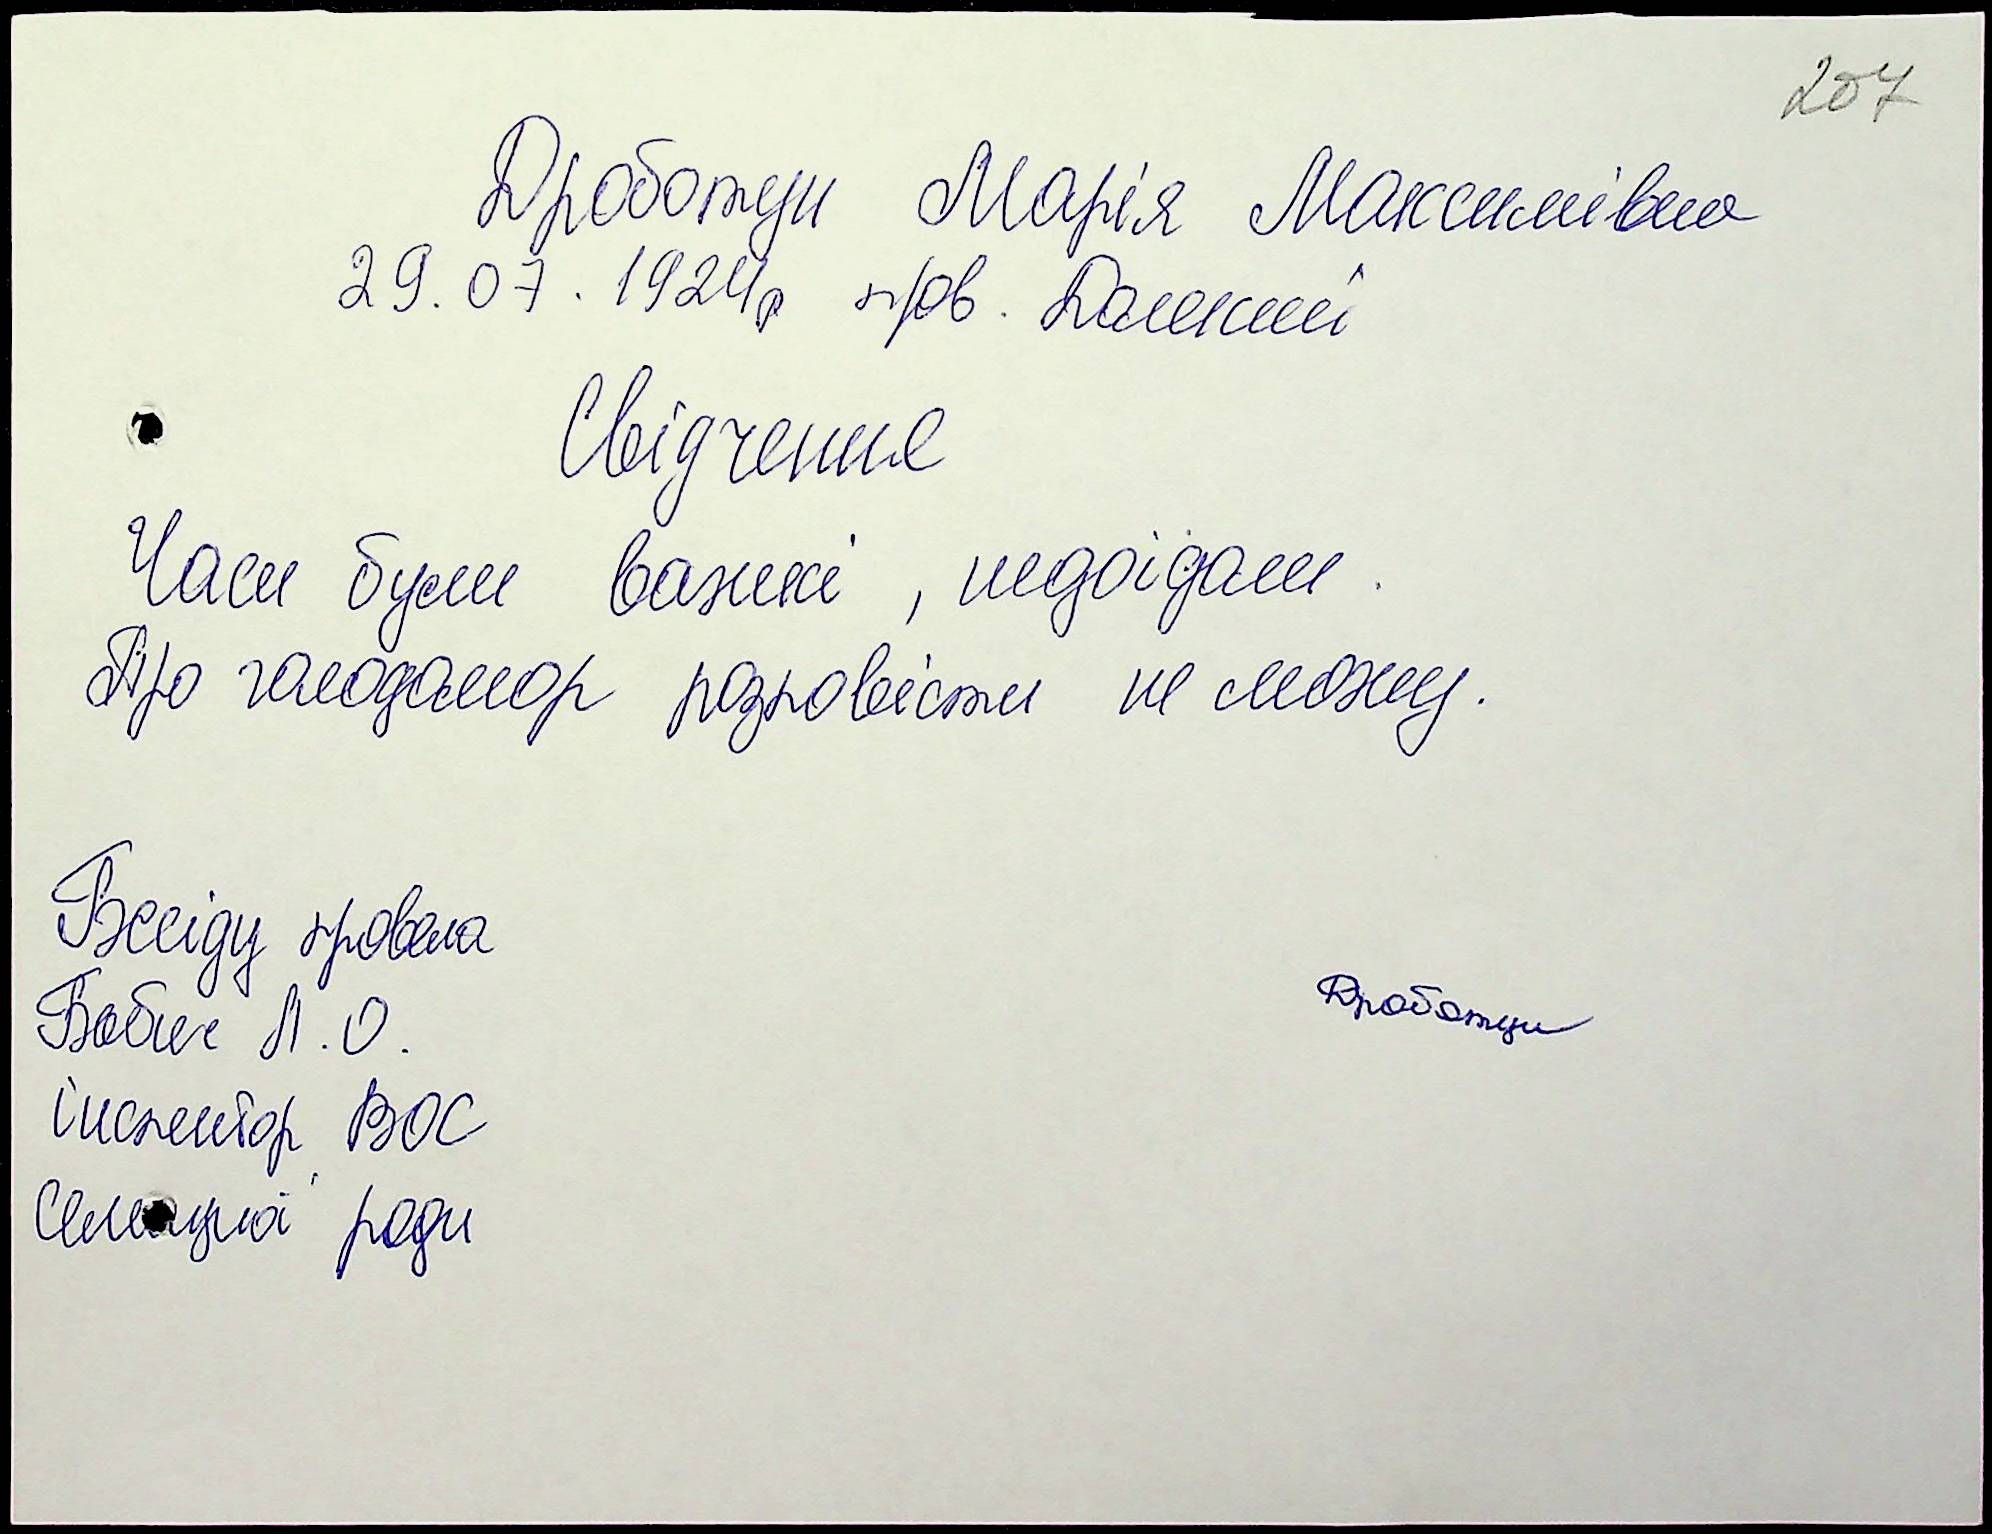 207
Дроботун Марія Максимівна
29.07.1924р пров. Дальній
Свідчення
Часи були важкі, недоїдали.
Про голодомор розповісти не можу.
Бесіду провела
Бабич Л.О.
інспектор ВОС
Селищної ради
Дроботун